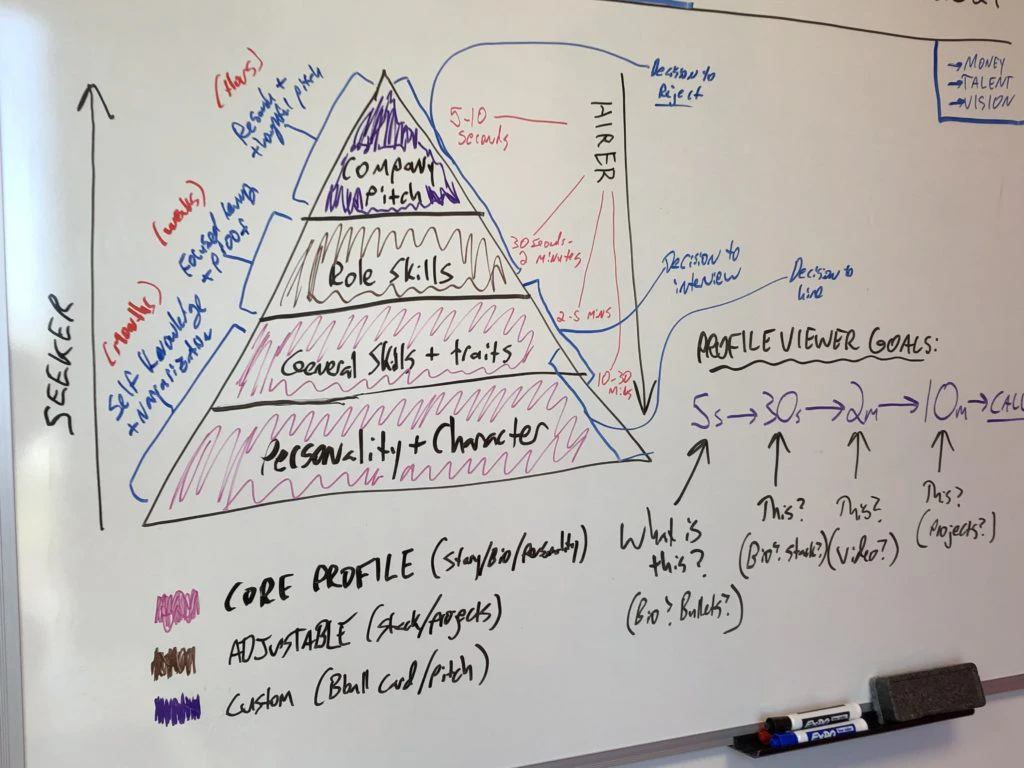 →MONEY
→TALENT
→VISION
SEEKER
(Hours)
Research +
thoughtful pitch
(weeks)
Focused learning
+ Proof
(Months)
Self Knowledge
+ Narrativization
Company
Pitch
Role Skills
General Skills + traits
Personality + Character
HIRER
5-10
seconds
30 seconds-
2 minutes
2-5 mins
10-30
mins
Decision to
Reject
Decision to
interview
Decision to
hire
PROFILE VIEWER GOALS:
5s → 30s → 2m → 10m → CALL
What is
this?
(Bio? Bullets?)
This?
(Bio? Stack?)
This?
(Video?)
This?
(Projects?)
CORE PROFILE (Story/Bio/Personality)
ADJUSTABLE (Stack/projects)
Custom (Bball Card/pitch)
EXPO
EXPO